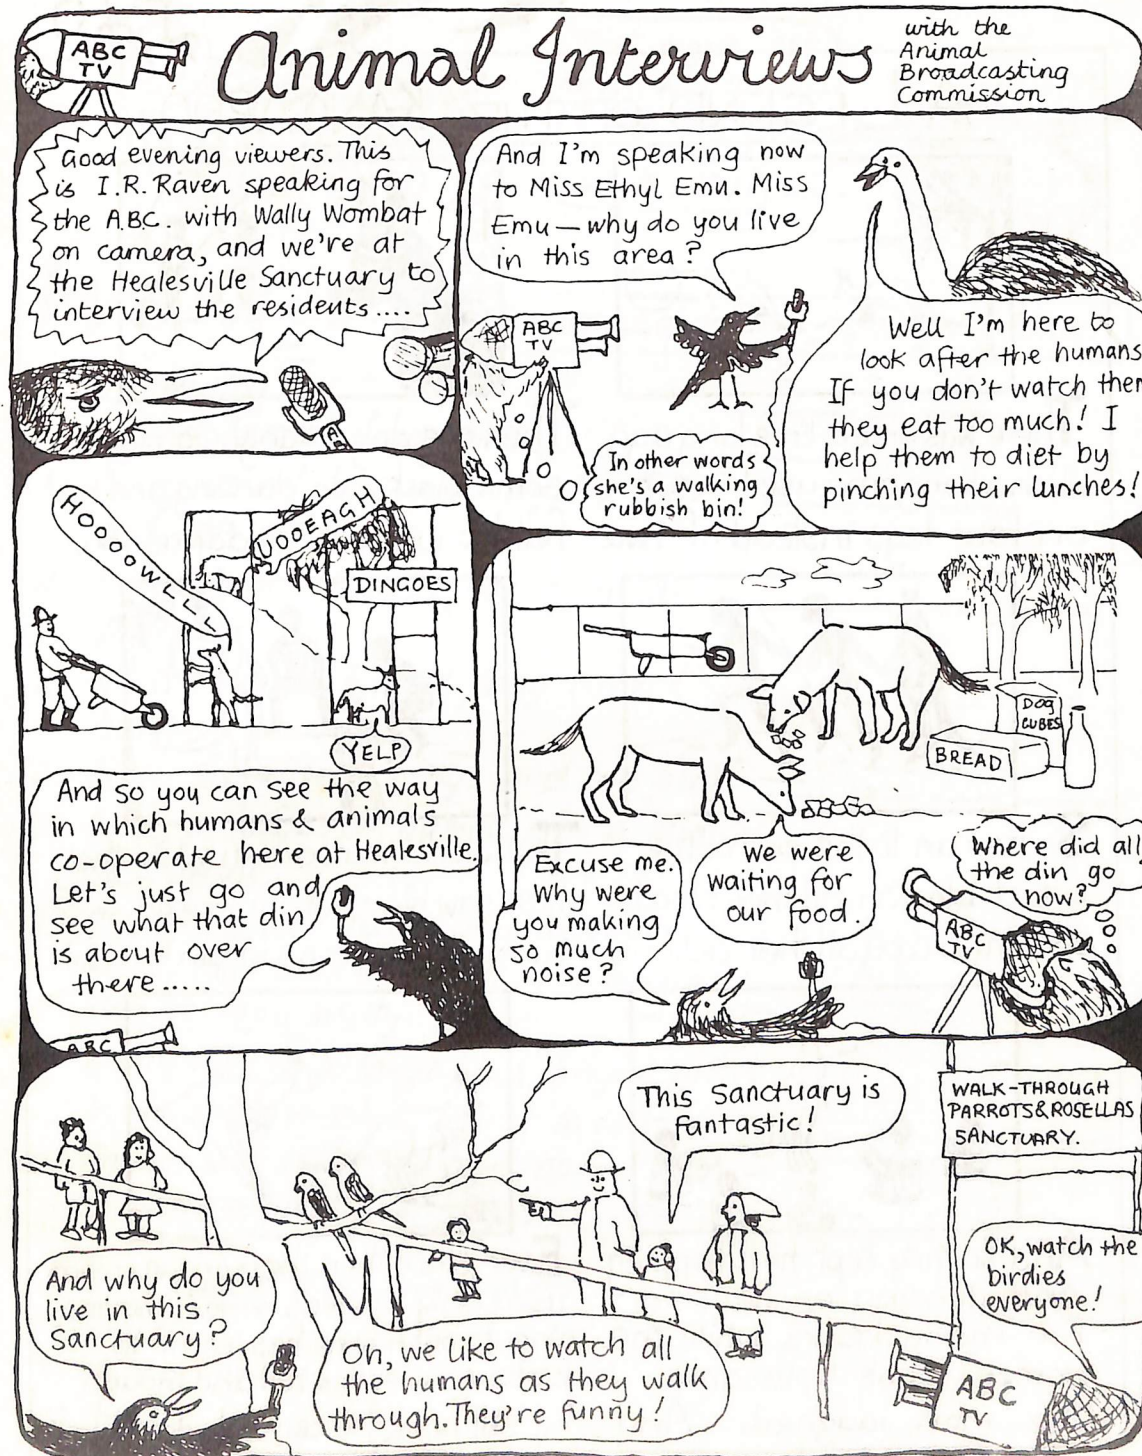 ABC
TV
Animal Interviews
with the
Animal
Broadcasting
Commission
Good evening viewers. This
is I.R. Raven speaking for
the A.B.C. with Wally Wombat
on camera, and we're at
the Healesville Sanctuary to
interview the residents....
A
And I'm speaking now
to Miss Ethyl Emu. Miss
Emu — why do you live
in this area?
ABC
TV
Well I'm here to
look after the humans
If you don't watch them
they eat too much! I
help them to diet by
pinching their lunches!
In other words
she's a walking
rubbish bin!
HOOOOWLLL
UOOEAGH
DINGOES
YELP
And so you can see the way
in which humans & animals
co-operate here at Healesville.
Let's just go and
see what that din
is about over
there.....
ABC
DOG
CUBES
BREAD
Excuse me.
Why were
you making
so much
noise?
We were
waiting for
our food.
Where did all
the din go
now?
ABC
TV
This Sanctuary is
fantastic!
WALK-THROUGH
PARROTS & ROSELLAS
SANCTUARY.
And why do you
live in this
Sanctuary?
Oh, we like to watch all
the humans as they walk
through. They're funny!
OK, watch the
birdies
everyone!
ABC
TV